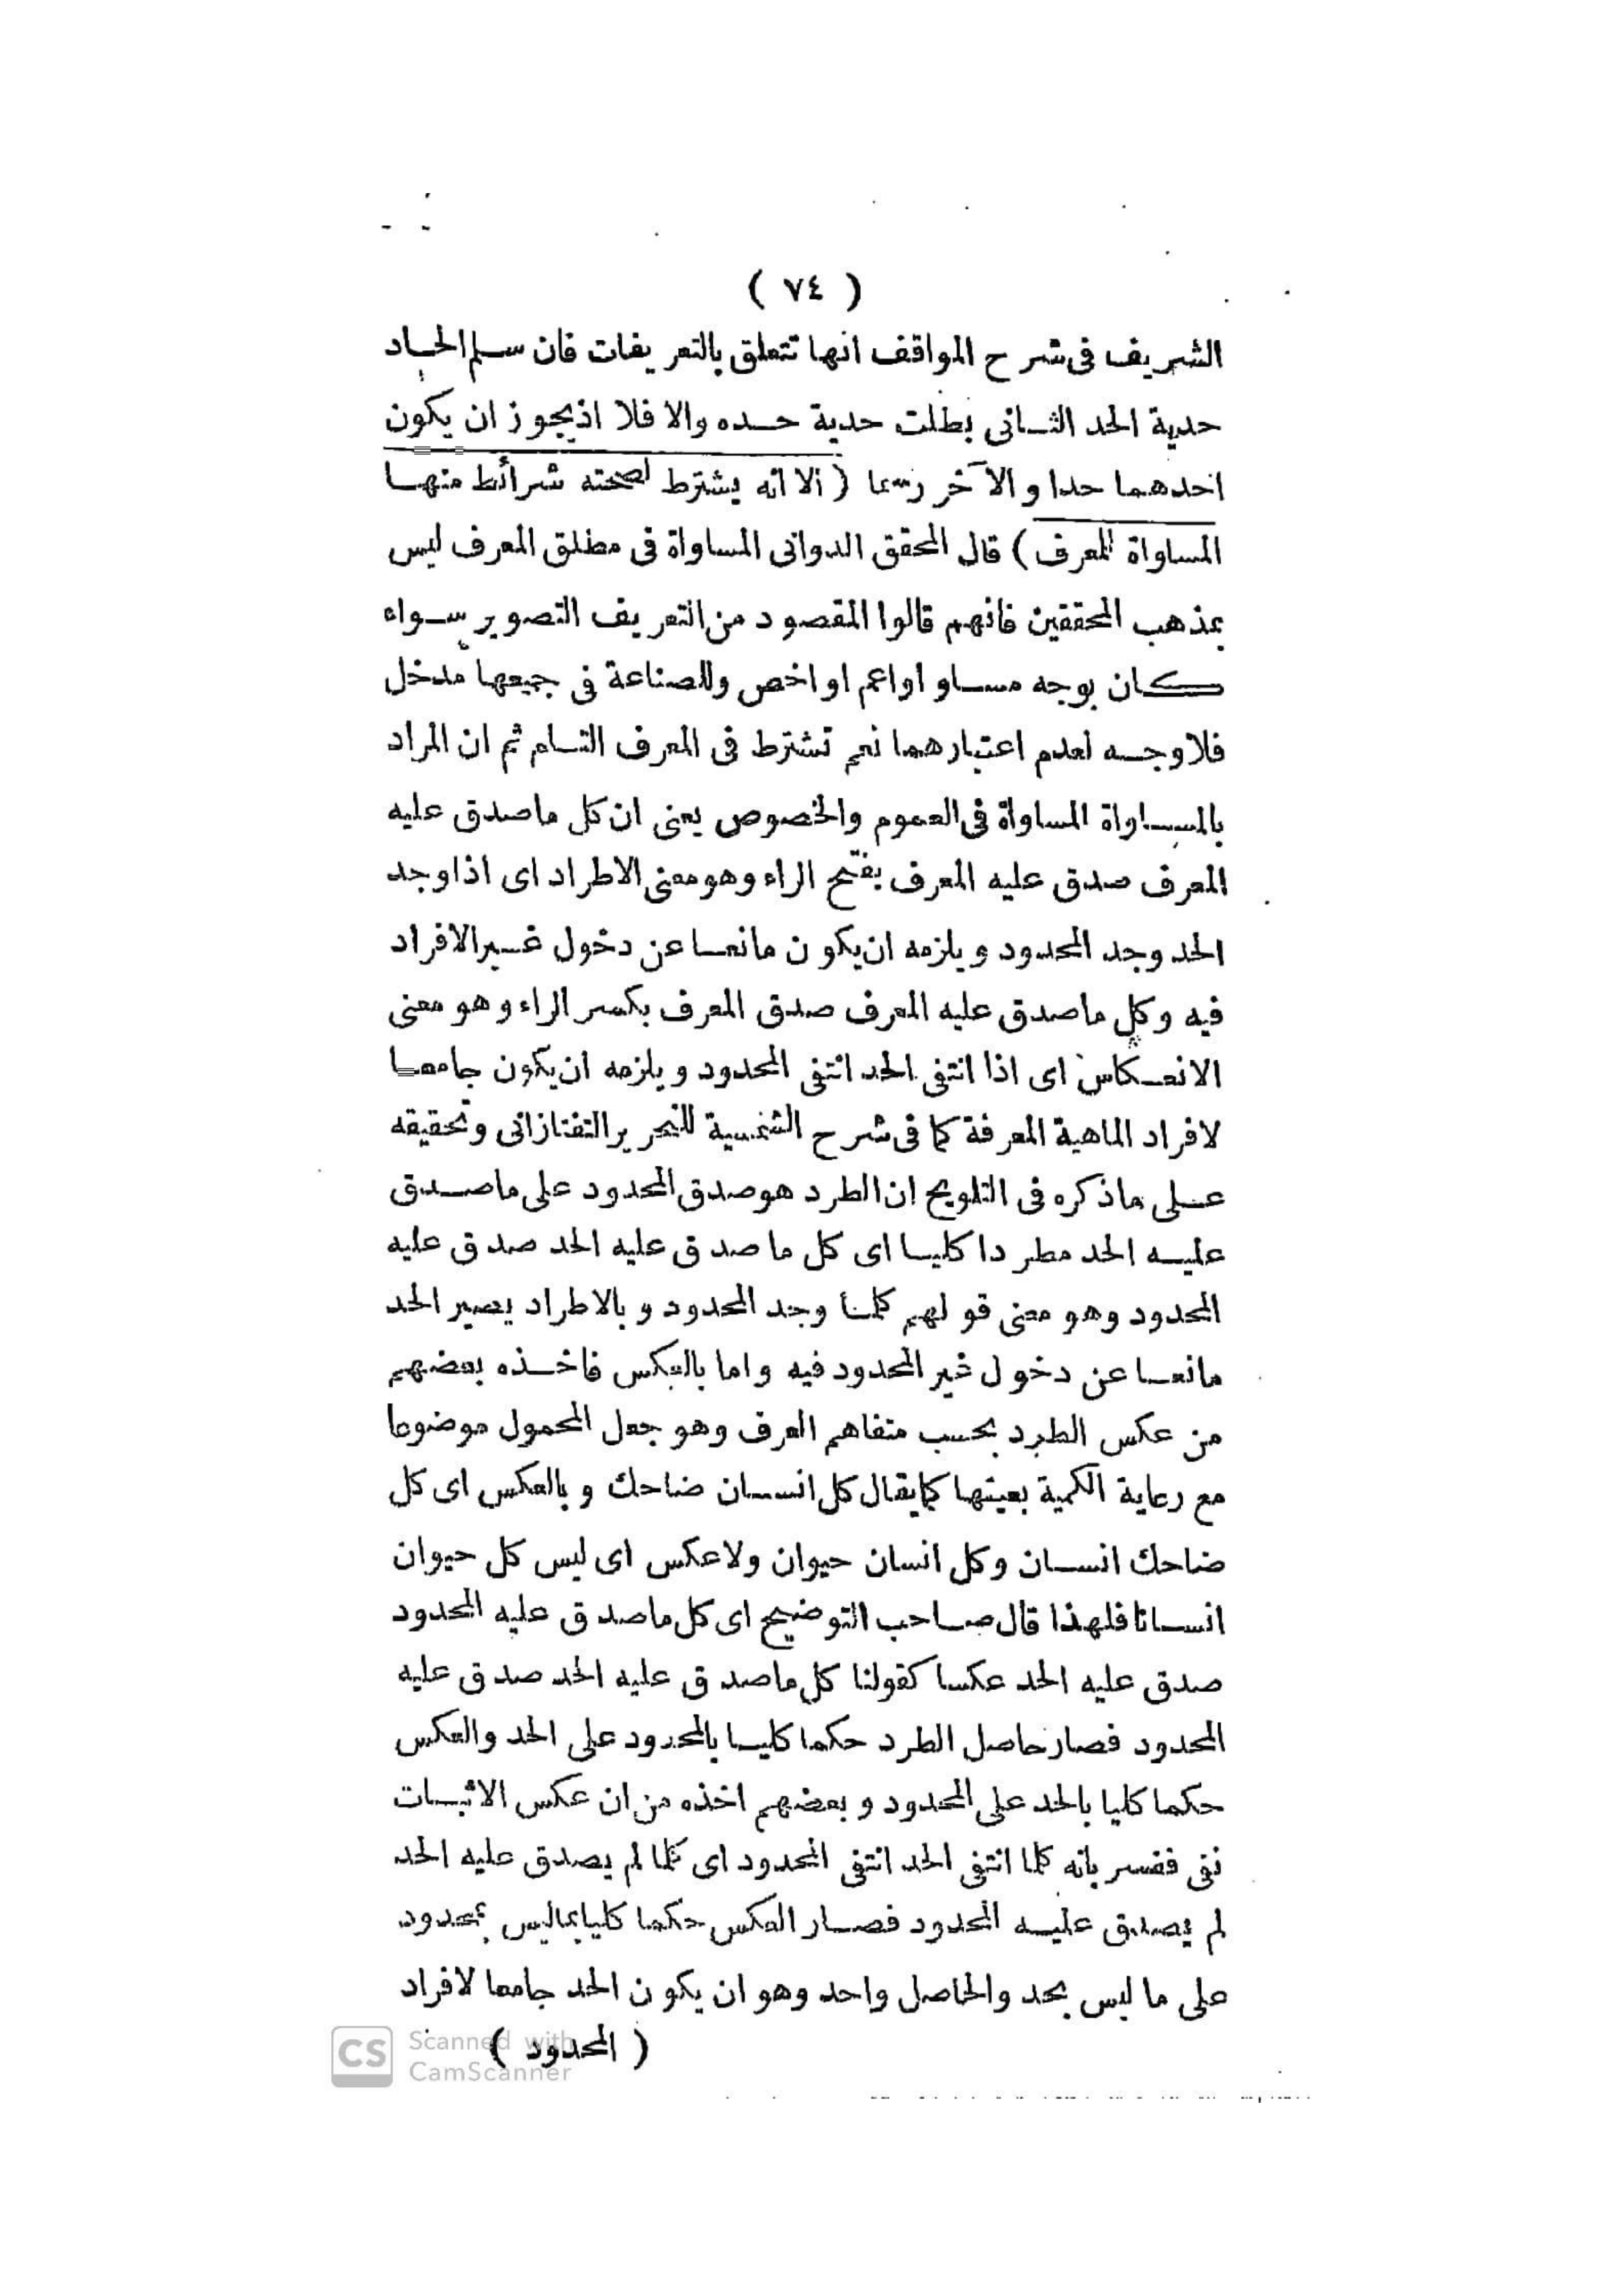 ( ٧٤ )
الشريف فى شرح المواقف انها تتعلق بالتعريفات فان سلم الحاد
حدية الحد الثانى بطلت حدية حده والا فلا اذيجوز ان يكون
احدهما حدا والآخر رسما ( الا انه يشترط لصحته شرائط منها
المساواة للمعرف ) قال المحقق الدوانى المساواة فى مطلق المعرف ليس
بمذهب المحققين فانهم قالوا المقصود من التعريف التصوير سواء
كان بوجه مساو او اعم او اخص وللصناعة فى جميعها مدخل
فلاوجه لعدم اعتبارهما نعم تشترط فى المعرف التام ثم ان المراد
بالمساواة المساواة فى العموم والخصوص يعنى ان كل ماصدق عليه
المعرف صدق عليه المعرف بفتح الراء وهو معنى الاطراد اى اذا وجد
الحد وجد المحدود ويلزمه ان يكون مانعا عن دخول غير الافراد
فيه وكل ماصدق عليه المعرف صدق المعرف بكسر الراء وهو معنى
الانعكاس اى اذا انتفى الحد انتفى المحدود ويلزمه ان يكون جامعا
لافراد الماهية المعرفة كما فى شرح الشمسية للنحرير التفتازانى وتحقيقه
على ماذكره فى التلويح ان الطرد هو صدق المحدود على ماصدق
عليه الحد مطردا كليا اى كل ما صدق عليه الحد صدق عليه
المحدود وهو معنى قولهم كلما وجد المحدود وبالاطراد يصير الحد
مانعا عن دخول غير المحدود فيه واما بالعكس فاخذه بعضهم
من عكس الطرد بحسب متفاهم العرف وهو جعل المحمول موضوعا
مع رعاية الكمية بعينها كمايقال كل انسان ضاحك وبالعكس اى كل
ضاحك انسان وكل انسان حيوان ولاعكس اى ليس كل حيوان
انسانا فلهذا قال صاحب التوضيح اى كل ماصدق عليه المحدود
صدق عليه الحد عكسا كقولنا كل ماصدق عليه الحد صدق عليه
المحدود فصار حاصل الطرد حكما كليا بالمحدود على الحد والعكس
حكما كليا بالحد على المحدود وبعضهم اخذه من ان عكس الاثبات
نفى ففسر بانه كلما انتفى الحد انتفى المحدود اى كلما لم يصدق عليه الحد
لم يصدق عليه المحدود فصار العكس حكما كليا بماليس بمحدود
على ما ليس بحد والحاصل واحد وهو ان يكون الحد جامعا لافراد
( المحدود )
CS Scanned with
CamScanner